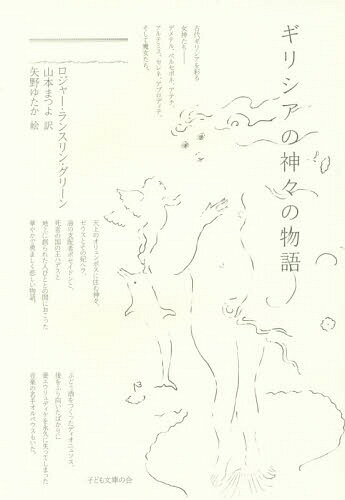 ギリシアの神々の物語
ロジャー・ランスリン・グリーン
山本まつよ 訳
矢野ゆたか 絵
古代ギリシアを彩る
女神たち――
デメテル、ペルセポネ、アテナ、
アルテミス、セレネ、アプロディテ、
そして魔女たち。
天上のオリュンポスに住む神々、
ゼウスとその妃ヘラ、
海の支配者ポセイドンと、
死者の国の王ハデスと
地上に創られた人びととの間におこった
華やかで勇ましく悲しい物語。
ぶどう酒をつくったディオニュソス、
後をふり向いたばかりに
妻エウリュディケを永久に失ってしまった、
音楽の名手オルペウスもいた。
子ども文庫の会